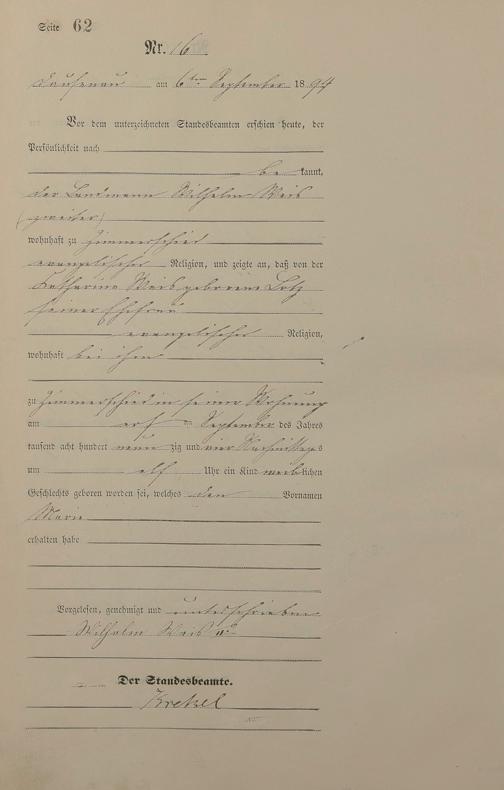 Seite 62
Nr. 16
Dausenau am 6ten September 1894
Vor dem unterzeichneten Standesbeamten erschien heute, der
Persönlichkeit nach
be kannt,
der Landmann Wilhelm Weis
(zweiter)
wohnhaft zu Zimmerschied
evangelischer Religion, und zeigte an, daß von der
Katharina Weis geborene Lotz
seiner Ehefrau
evangelischer Religion,
wohnhaft bei ihm
zu Zimmerschied in seiner Wohnung
am September des Jahres
tausend acht hundert neun zig und vier Nachmittags
um elf Uhr ein Kind weiblichen
Geschlechts geboren worden sei, welches den Vornamen
Marie
erhalten habe
Vorgelesen, genehmigt und unterschrieben
Wilhelm Weis
Der Standesbeamte.
Kretzel